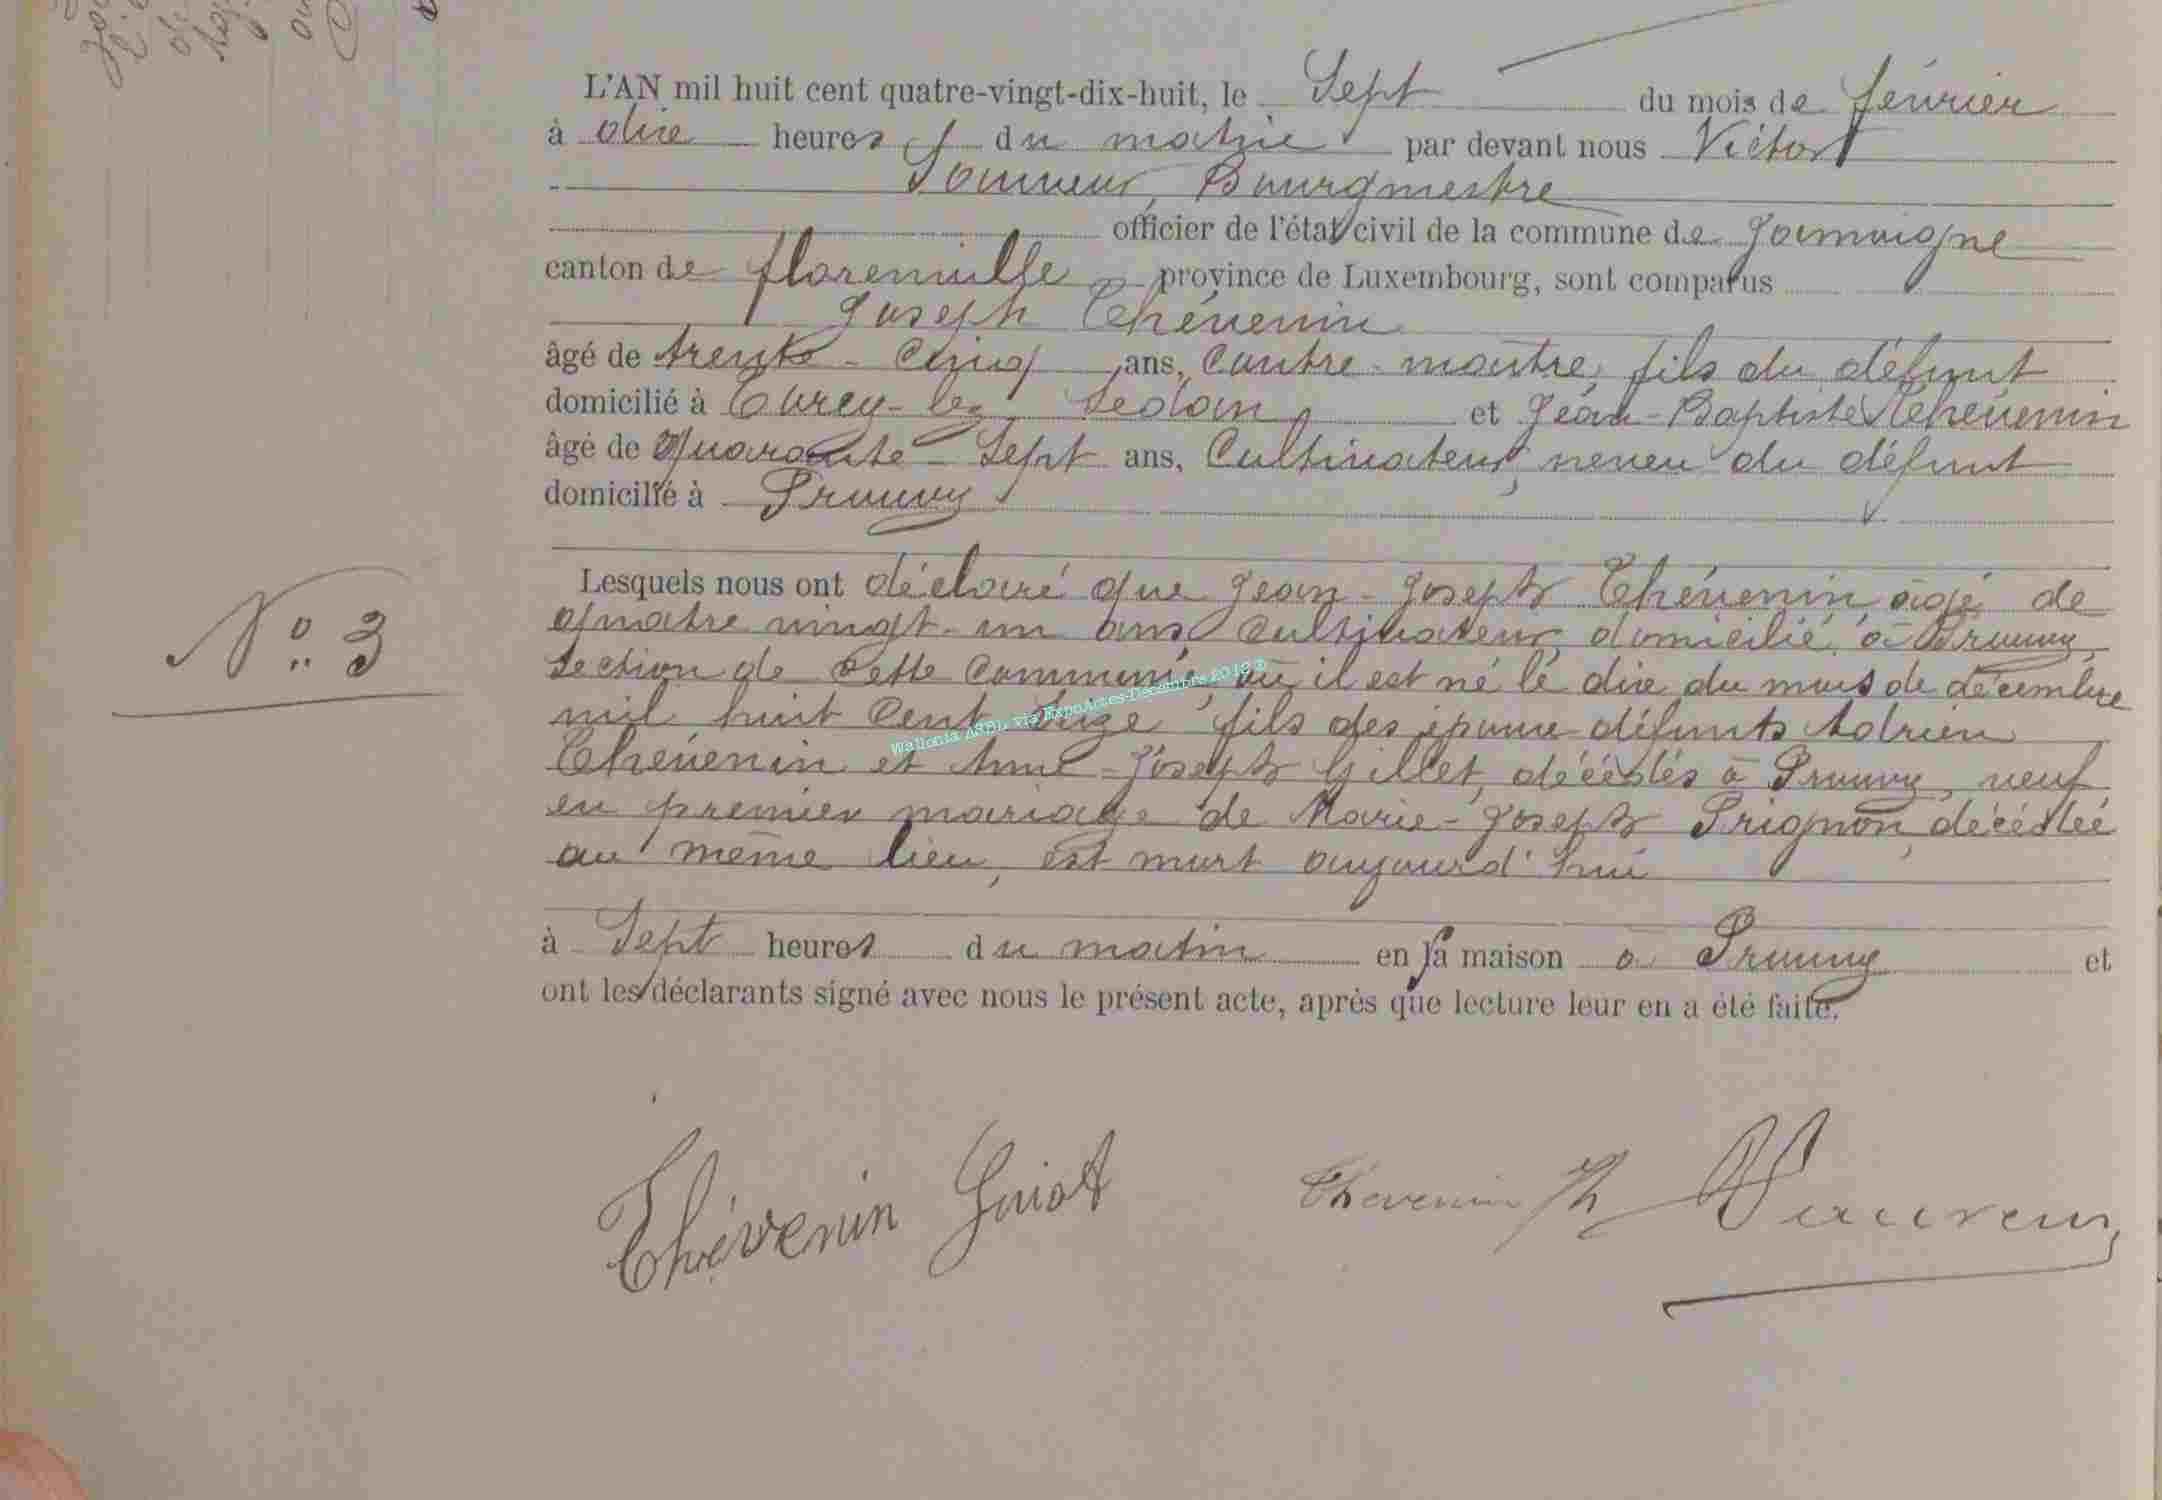 L'AN mil huit cent quatre-vingt-dix-huit, le Sept du mois de février
à dix heures du matin par devant nous Victor
Bourgmestre
officier de l'état civil de la commune de Jamoigne
canton de florenville province de Luxembourg, sont comparus
Joseph Thévenin
âgé de trente-cinq ans, Contre-maître, fils du défunt
domicilié à lez Sedan et Jean-Baptiste Thévenin
âgé de quarante-Sept ans, Cultivateur, neveu du défunt
domicilié à Prouvy
Lesquels nous ont déclaré que Jean-Joseph Thévenin âgé de
quatre vingt-un ans, Cultivateur, domicilié à Prouvy,
Section de cette Commune, où il est né le dix du mois de décembre
mil huit Cent Seize fils des époux défunts Adrien
Thévenin et Anne-Joseph Gillet, décédés à Prouvy, veuf
en premier mariage de Marie-Joseph Prignon, décédée
au même lieu, est mort aujourd'hui
N° 3
à Sept heures du matin en sa maison à Prouvy et
ont les déclarants signé avec nous le présent acte, après que lecture leur en a été faite.
Thévenin Guiot Thevenin
Wallonia ASBL via ExpoActes-Décembre 2018©